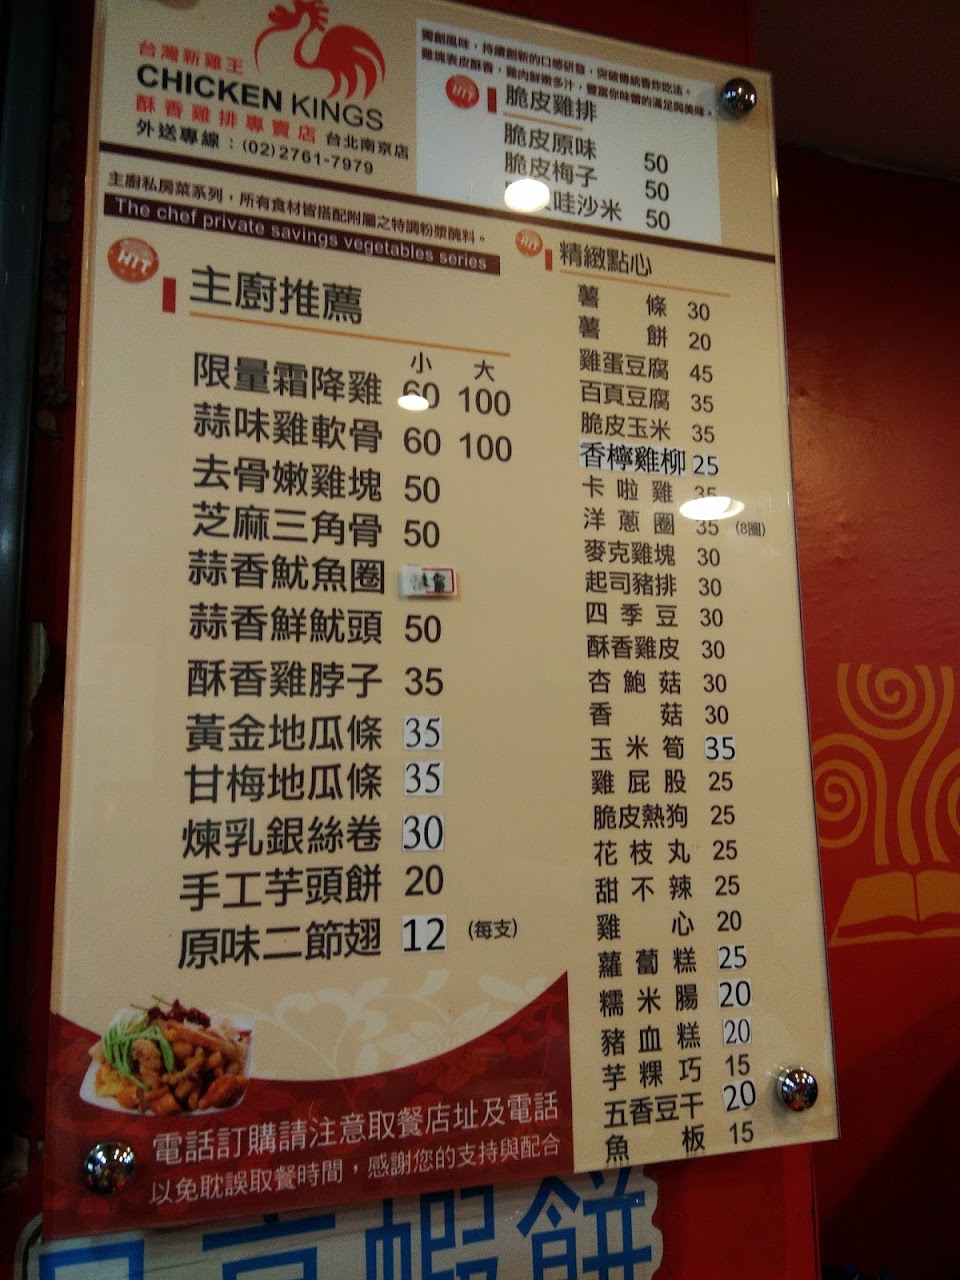 台灣新雞王
CHICKEN KINGS
酥香雞排專賣店 台北南京店
外送專線：(02)2761-7979
獨創風味，持續創新的口感研發，突破傳統香炸吃法。
雞塊表皮酥香，雞肉鮮嫩多汁，豐富你味蕾的滿足與美味。
HIT 脆皮雞排
脆皮原味 50
脆皮梅子 50
哇沙米 50
主廚私房菜系列，所有食材皆搭配附屬之特調粉漿醃料。
The chef private savings vegetables series
HIT 主廚推薦
小 大
限量霜降雞 60 100
蒜味雞軟骨 60 100
去骨嫩雞塊 50
芝麻三角骨 50
蒜香魷魚圈
蒜香鮮魷頭 50
酥香雞脖子 35
黃金地瓜條 35
甘梅地瓜條 35
煉乳銀絲卷 30
手工芋頭餅 20
原味二節翅 12 (每支)
HIT 精緻點心
薯條 30
薯餅 20
雞蛋豆腐 45
百頁豆腐 35
脆皮玉米 35
香檸雞柳 25
卡啦雞 35
洋蔥圈 35 (8圈)
麥克雞塊 30
起司豬排 30
四季豆 30
酥香雞皮 30
杏鮑菇 30
香菇 30
玉米筍 35
雞屁股 25
脆皮熱狗 25
花枝丸 25
甜不辣 25
雞心 20
蘿蔔糕 25
糯米腸 20
豬血糕 20
芋粿巧 15
五香豆干 20
魚板 15
電話訂購請注意取餐店址及電話
以免耽誤取餐時間，感謝您的支持與配合
蝦餅